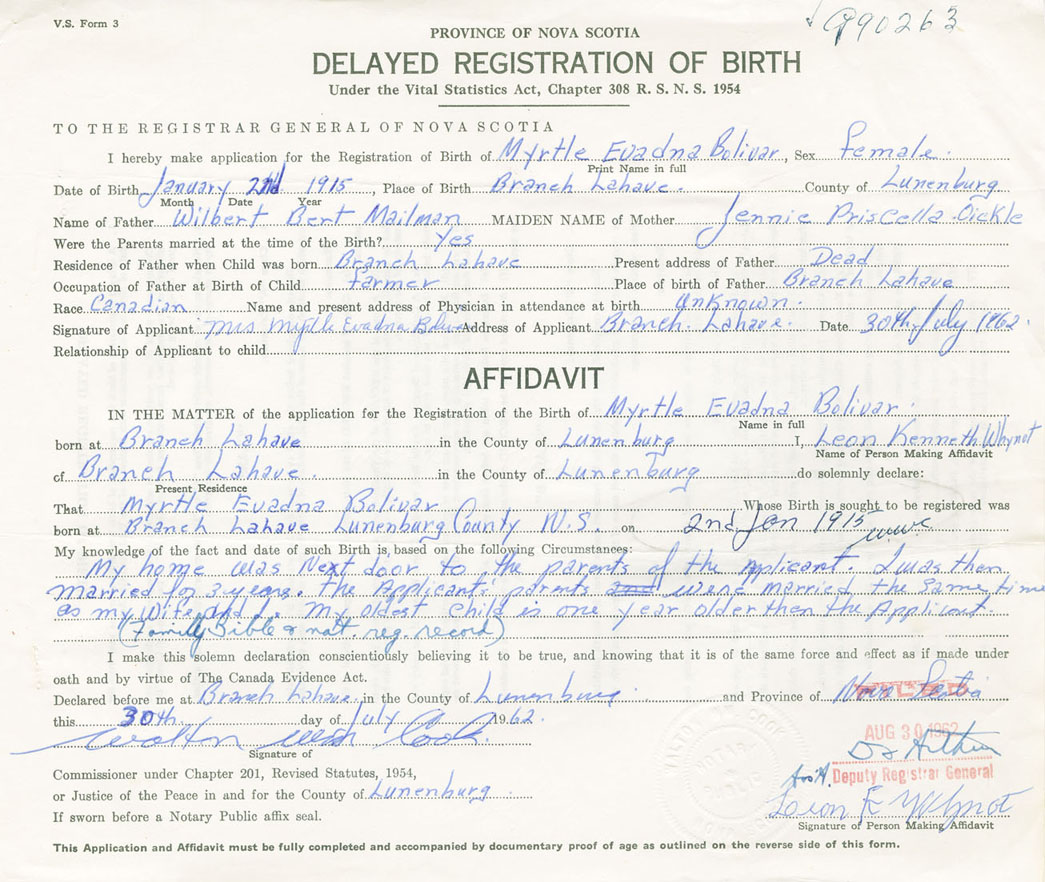 V.S. Form 3
990263
PROVINCE OF NOVA SCOTIA
DELAYED REGISTRATION OF BIRTH
Under the Vital Statistics Act, Chapter 308 R. S. N. S. 1954
TO THE REGISTRAR GENERAL OF NOVA SCOTIA
I hereby make application for the Registration of Birth of Myrtle Evadna Bolivar, Sex female.
Print Name in full
Date of Birth January 2nd 1915, Place of Birth Branch Lahave. County of Lunenburg
Month Date Year
Name of Father Wilbert Bert Mailman MAIDEN NAME of Mother Jennie Priscella Oickle
Were the Parents married at the time of the Birth? Yes
Residence of Father when Child was born Branch Lahave Present address of Father Dead
Occupation of Father at Birth of Child farmer Place of birth of Father Branch Lahave
Race Canadian Name and present address of Physician in attendance at birth unknown.
Signature of Applicant Mrs. Myrtle Evadna Bolivar Address of Applicant Branch Lahave. Date 30th July 1962.
Relationship of Applicant to child
AFFIDAVIT
IN THE MATTER of the application for the Registration of the Birth of Myrtle Evadna Bolivar.
Name in full
born at Branch Lahave in the County of Lunenburg I, Leon Kenneth Whynot
Name of Person Making Affidavit
of Branch Lahave. in the County of Lunenburg do solemnly declare:
Present Residence
That Myrtle Evadna Bolivar Whose Birth is sought to be registered was
born at Branch Lahave Lunenburg County N.S. on 2nd Jan 1915
My knowledge of the fact and date of such Birth is, based on the following Circumstances:
My home was Next door to the parents of the Applicant. I was then
married for 3 years. the Applicant's parents were married the same time
as my Wife and I. My oldest child is one year older then the Applicant
(Family Bible & nat. reg. record)
I make this solemn declaration conscientiously believing it to be true, and knowing that it is of the same force and effect as if made under
oath and by virtue of The Canada Evidence Act.
Declared before me at Branch Lahave, in the County of Lunenburg. and Province of Nova Scotia
this 30th day of July 1962.
AUG 30 1962
Signature of
Commissioner under Chapter 201, Revised Statutes, 1954,
Ass't. Deputy Registrar General
or Justice of the Peace in and for the County of Lunenburg
Leon K Whynot
If sworn before a Notary Public affix seal.
Signature of Person Making Affidavit
This Application and Affidavit must be fully completed and accompanied by documentary proof of age as outlined on the reverse side of this form.